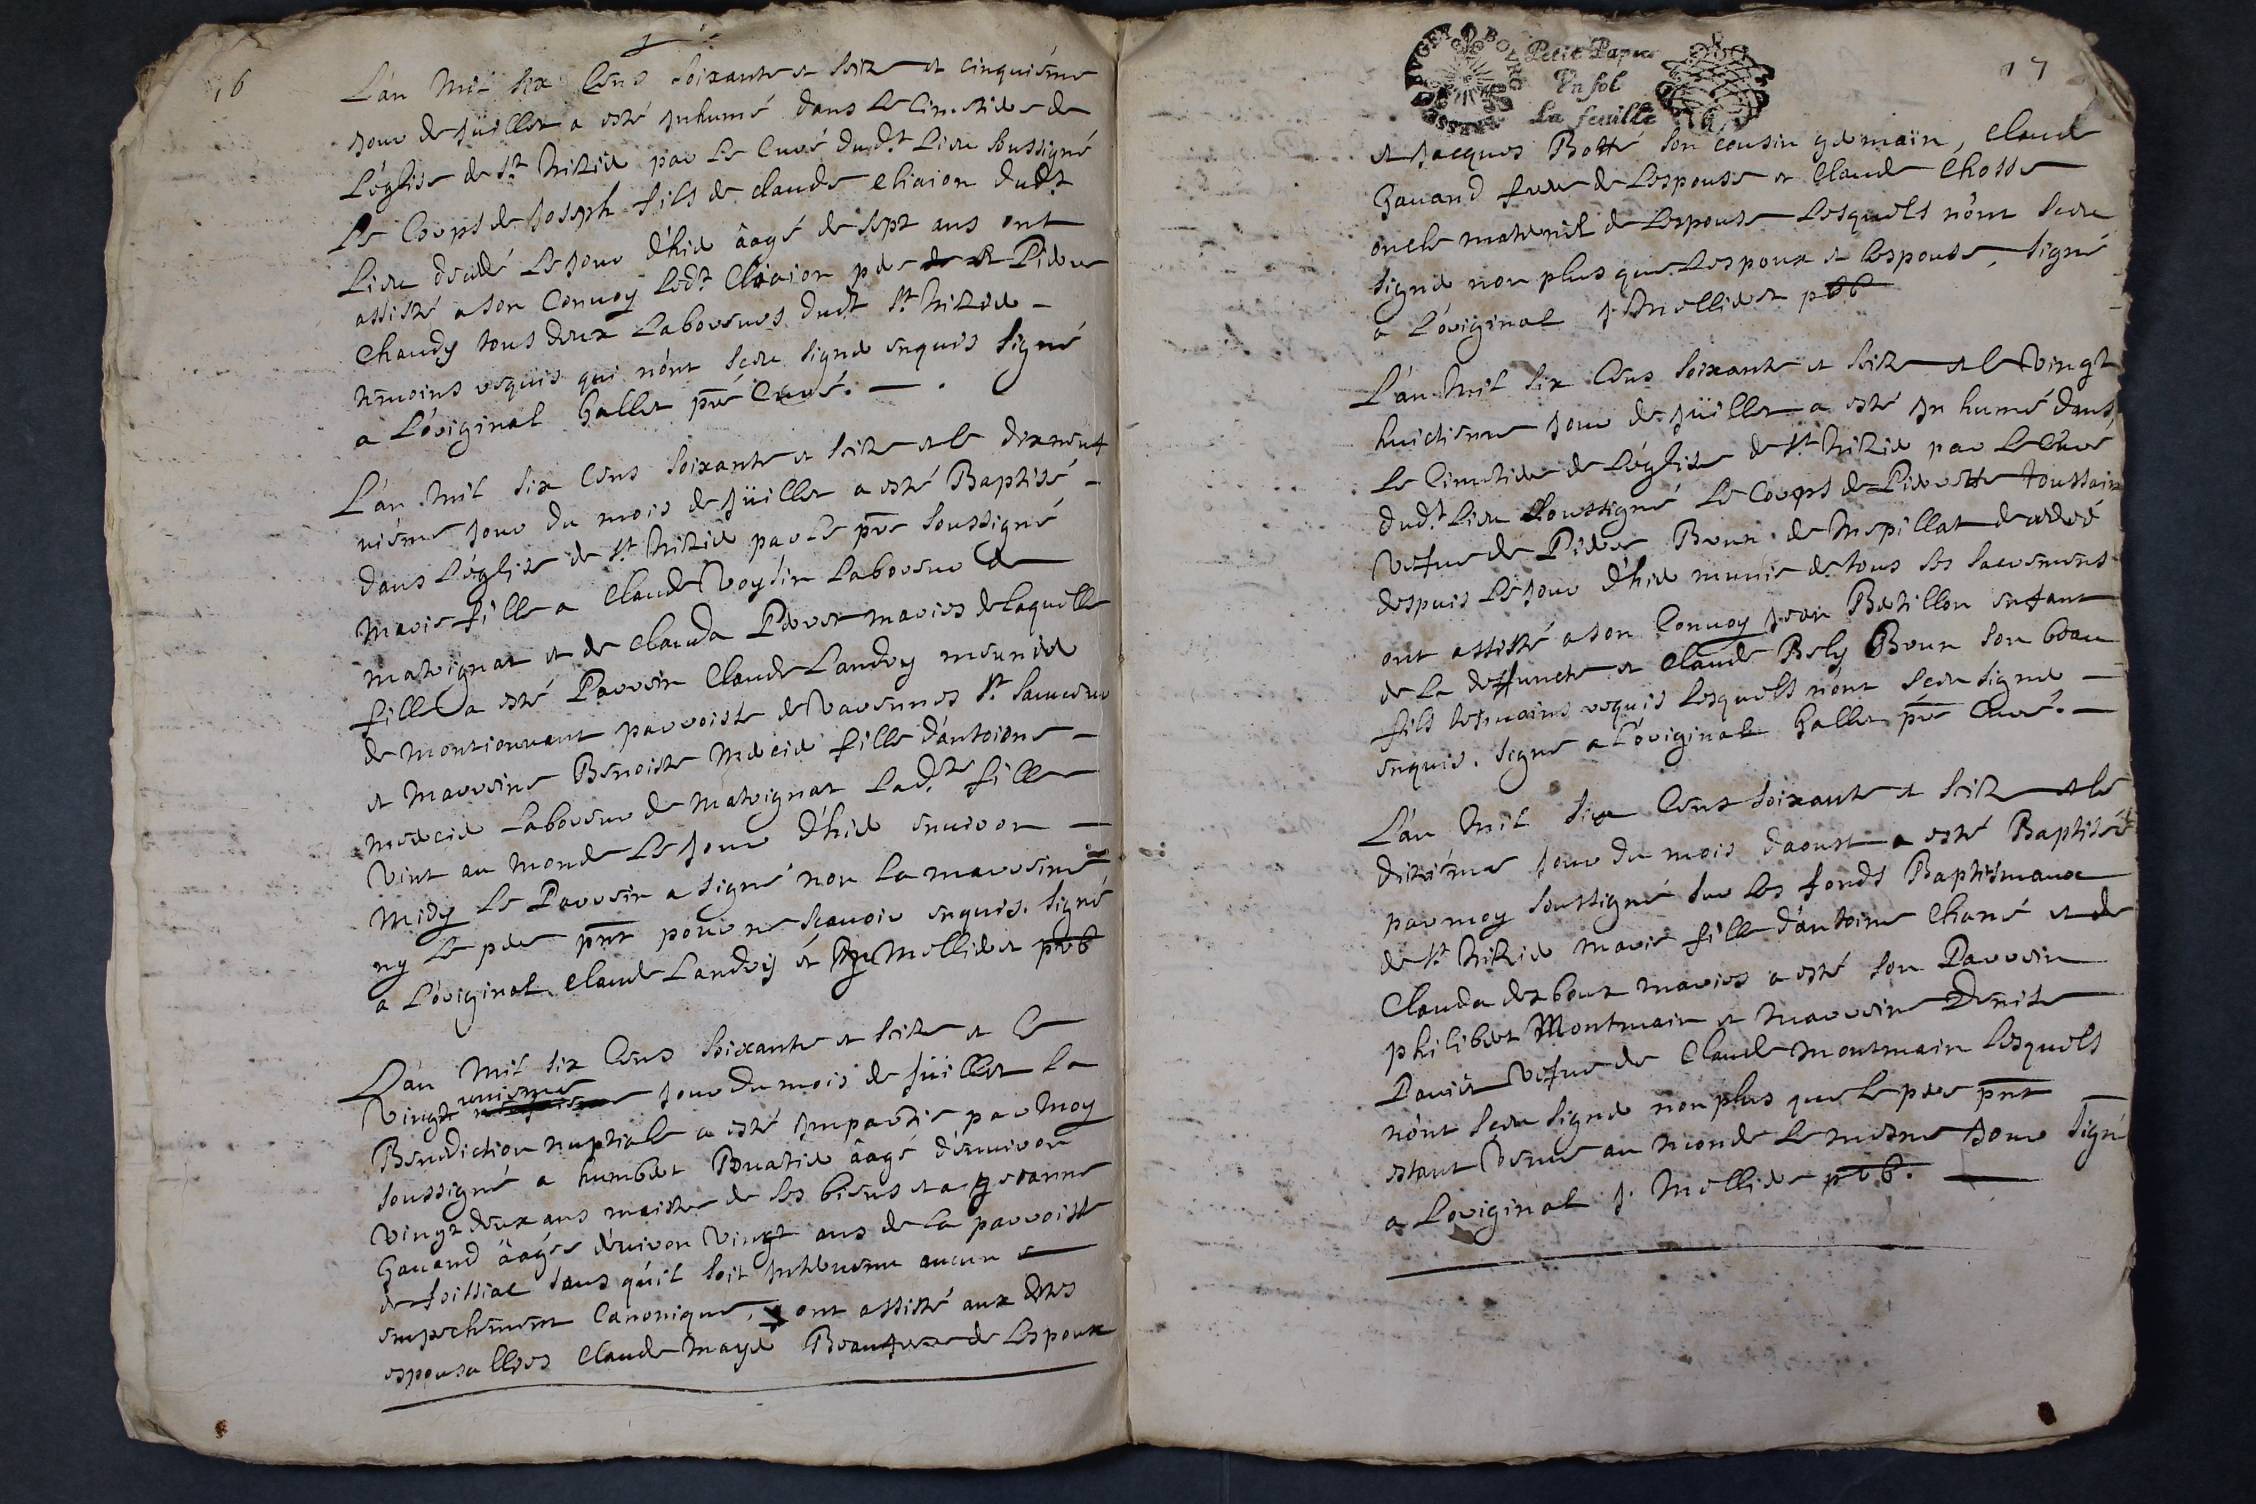 16
L'an Mil six Cens soixante et seize et cinquiéme
jour de juillet a esté inhumé dans le Cimetiere de
L'église de St Nizier par le Curé dud.t Lieu soussigné
Le Corps de Joseph fils de claude Chaion dud.t
Lieu decedé le jour d'hier âagé de sept ans ont
assisté a son Convoy led.t Chaion pere et Pierre
Chaudy tous deux Laboureurs dudt St Nizier
témoins requis qui n'ont sceu signer enquis signé
a L'original Gallet pre Curé.
L'an Mil six Cens soixante et seize et le dixneuf
viéme jour du mois de juillet a esté Baptisé
dans L'église de St Nizier par le pre soussigné
Marie fille a Claude Voysin Laboureur de
Marvignat et de Clauda Perret maries de laquelle
fille a esté Parrain Claude Landry meunier
de Montionvent parroisse de Varennes St Sauveur
et Marraine Benoiste Mercier fille d'antoione
mercier Laboureur de Matvignat Lad.te fille
Vint au monde le jour d'hier environ
Midy Le Parrein a signé non la marreine
ny le pere pnt pour ne scavoir enquis. signé
a L'original Claude Landry et Melliert prb
L'an Mil six Cens soixante et seize et le
Vingt uniéme jour du mois de juillet la
Benediction nuptiale a esté impartie par Moy
soussigné a humbert Buatier âagé d'environ
Vingt deux ans maistre de ses biens et a jeanne
Gavand âagée d'environ Vingt ans de la parroisse
de foissiac sans qu'il soit intervenu aucun
empechement Canonique, y ont assisté aux dtes
espousalles Claude Mayer Beaufrere de Lespoux
17
BOURG
Petit Papier
Un sol
La feuille
et Jacques Botté son cousin germain, Claude
Gavand frere de Lespouse et Claude Chosse
oncle maternel de Lespouse Lesquels n'ont sceu
signer non plus que Lespoux et Lespouse, signé
a L'original J. Melliert prb
L'an Mil six Cens soixante et seize et le Vingt
huictiéme jour de juillet a esté inhumé dans
Le Cimetiere de L'église de St Nizier par Le Curé
dud.t Lieu soussigné Le Corps de Pierrette Toussain
Vefve de Pierre Brun de Mepillat decedé
despuis le jour d'hier munie de tous ses sacremens
ont assisté a son Convoy jean Bretillon enfant
de La deffuncte et Claude Bely Brun son beau
fils tesmoins requis Lesquels n'ont sceu signer
enquis. Signé a L'original Gallet pre Curé.
L'an Mil six Cens soixante et seize et le
diziéme jour du mois daoust a esté Baptisée
par moy soussigné sur Les fonds Baptismaux
de St Nizier Marie fille d'antoine Chané et de
Clauda desbout maries a esté son Parrein
philibert Montmain et Marreine Denise
Pauiet Vefve de Claude Montmain Lesquels
n'ont sceu signer non plus que le pere pnt
estant Venue au monde le mesme jour Signé
a Loriginal J. Melliere prb.